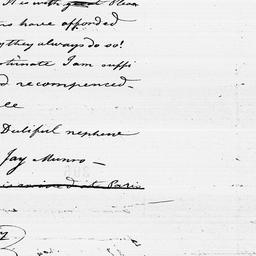 It is with great Pleas
rs have afforded
y they always do so!
ortunate I am suffi
d recompenced -
Dutiful nephew
Jay Munro -
is arrived at Paris